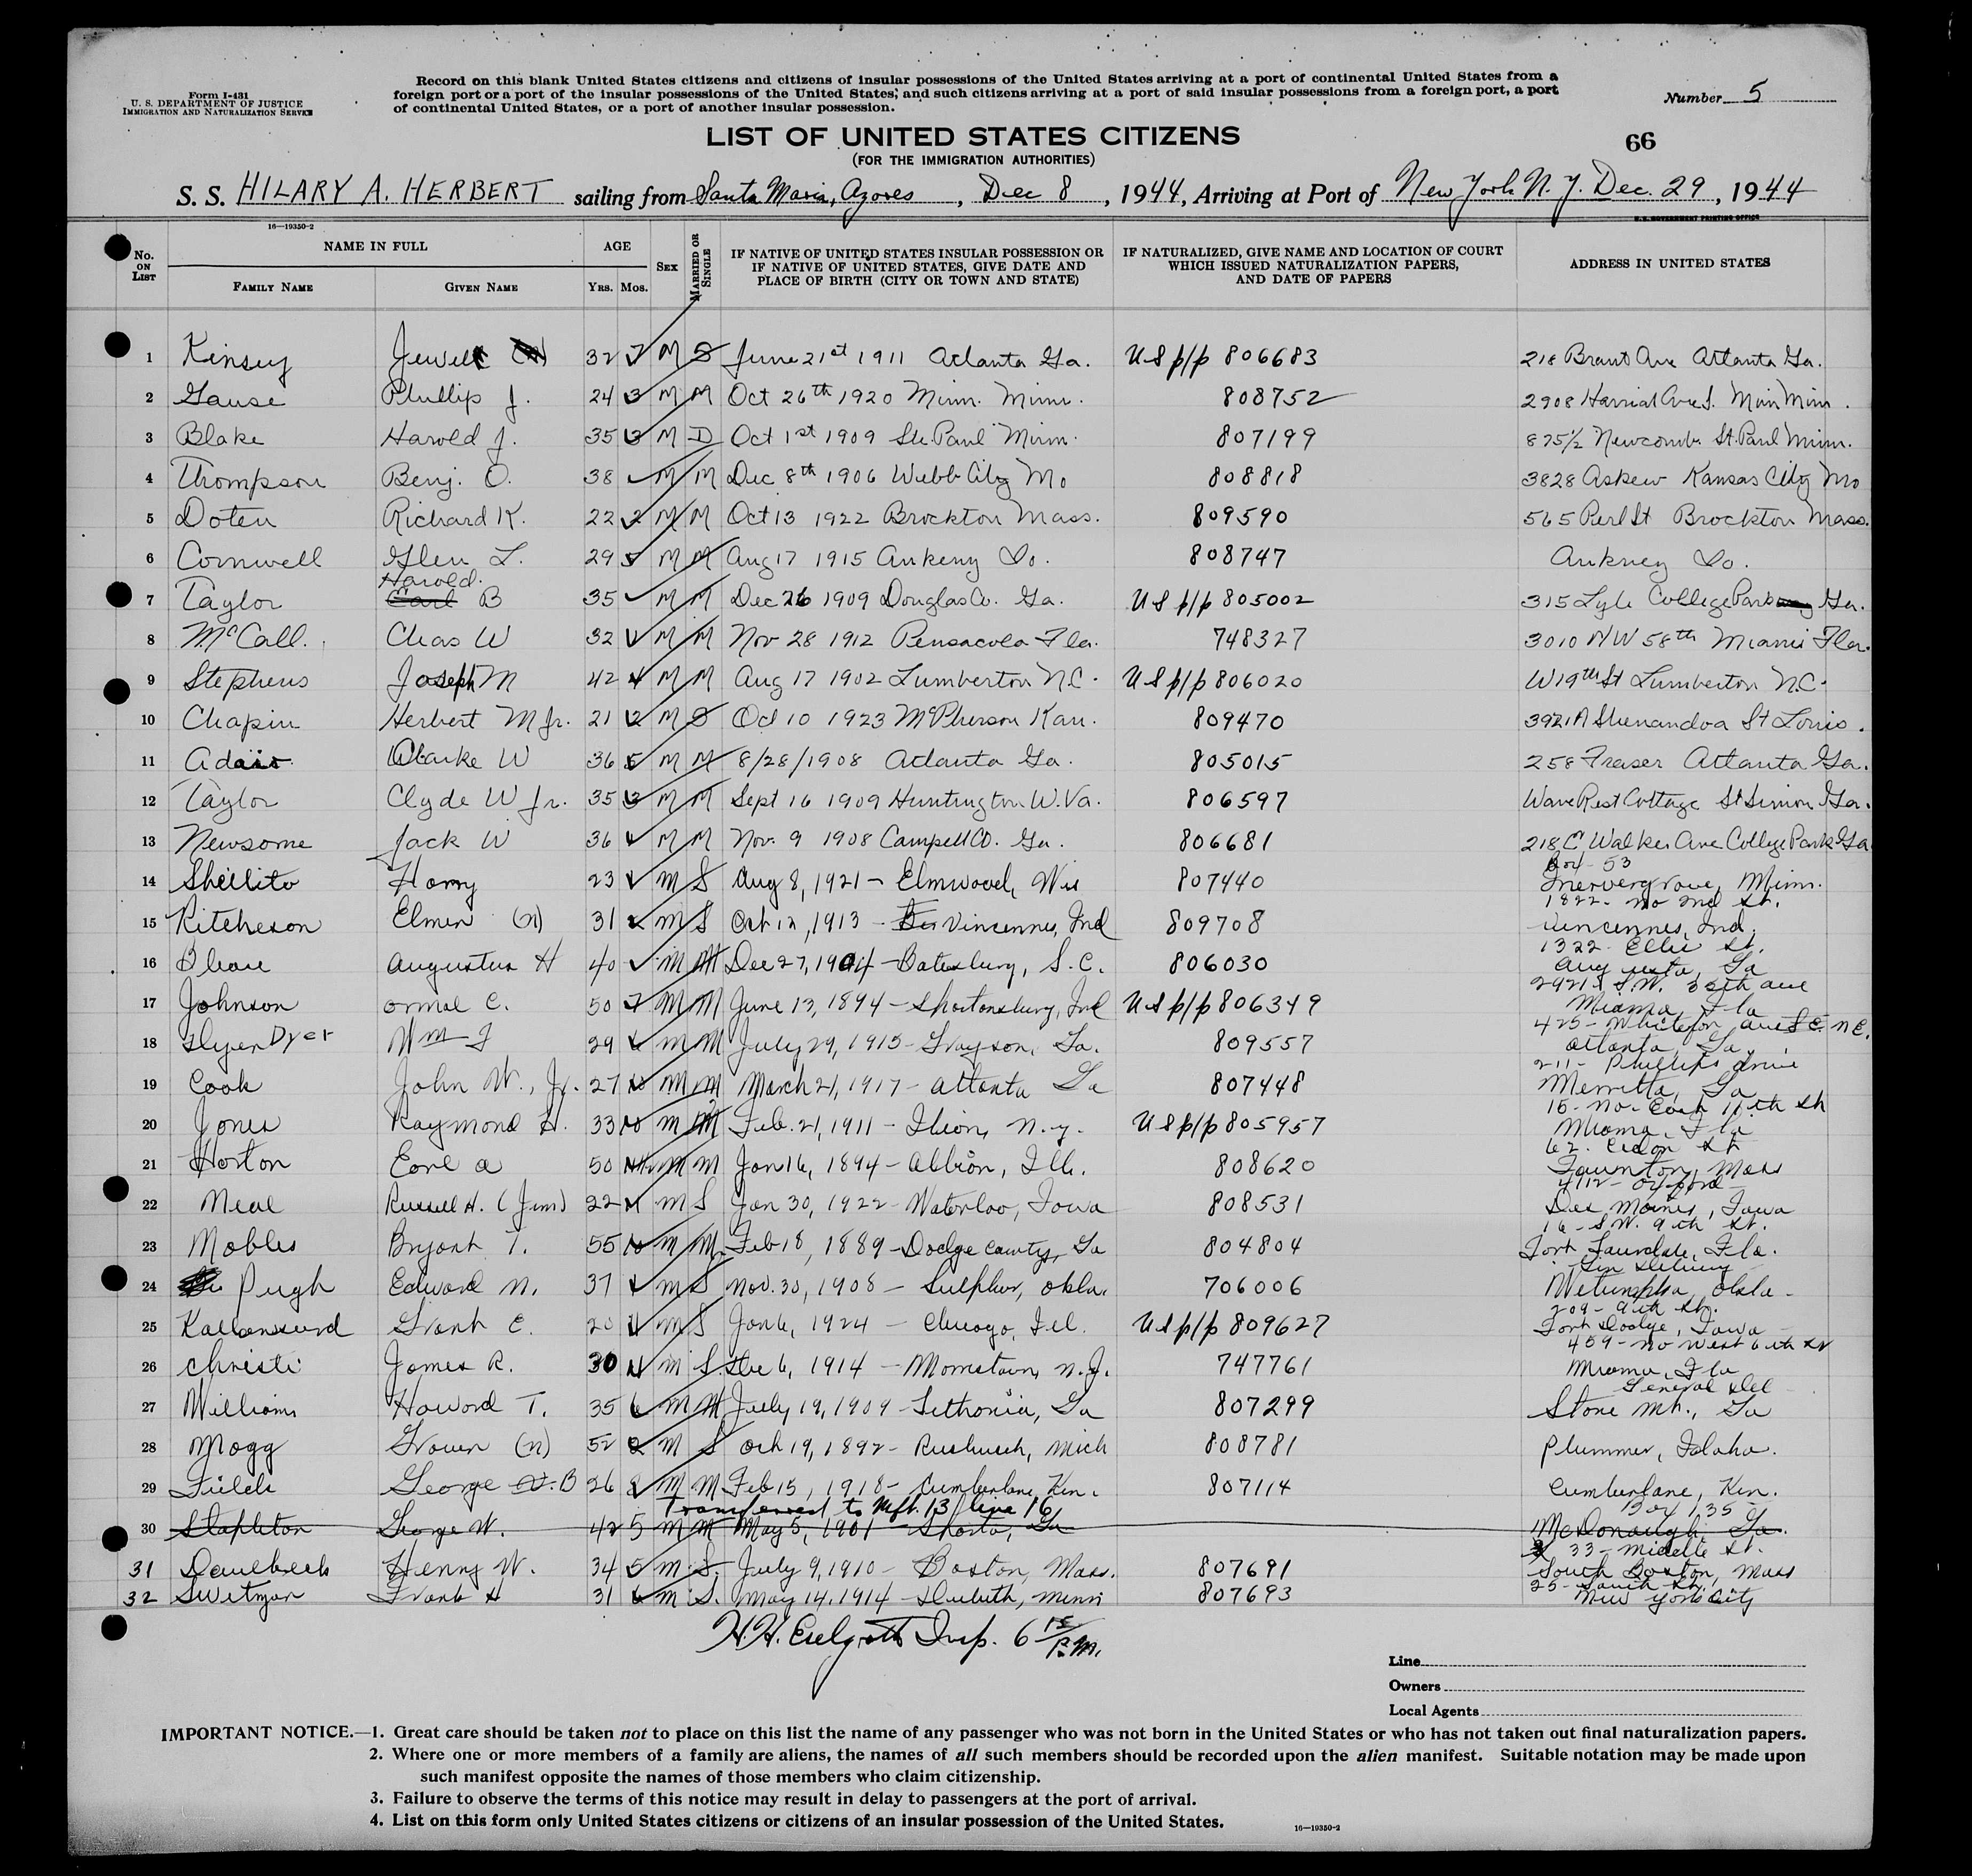 Form I-431
U. S. DEPARTMENT OF JUSTICE
IMMIGRATION AND NATURALIZATION SERVICE
Record on this blank United States citizens and citizens of insular possessions of the United States arriving at a port of continental United States from a
foreign port or a port of the insular possessions of the United States; and such citizens arriving at a port of said insular possessions from a foreign port, a port
of continental United States, or a port of another insular possession.
Number 5
LIST OF UNITED STATES CITIZENS
(FOR THE IMMIGRATION AUTHORITIES)
66
S. S. HILARY A. HERBERT sailing from Santa Maria, Azores, Dec 8, 1944, Arriving at Port of New York N.Y. Dec. 29, 1944
U.S. GOVERNMENT PRINTING OFFICE
16—19350-2
No. ON LIST
NAME IN FULL
FAMILY NAME
GIVEN NAME
AGE
YRS. MOS.
SEX
MARRIED OR SINGLE
IF NATIVE OF UNITED STATES INSULAR POSSESSION OR
IF NATIVE OF UNITED STATES, GIVE DATE AND
PLACE OF BIRTH (CITY OR TOWN AND STATE)
IF NATURALIZED, GIVE NAME AND LOCATION OF COURT
WHICH ISSUED NATURALIZATION PAPERS,
AND DATE OF PAPERS
ADDRESS IN UNITED STATES
1 Kinsey Jewell 32 M S June 21st 1911 Atlanta Ga. US p/p 806683 218 Brant Ave Atlanta Ga.
2 Gause Phillip J. 24 M M Oct 26th 1920 Minn. Minn. 808752 2908 Harriat Ave S. Minn Minn.
3 Blake Harold J. 35 M D Oct 1st 1909 St. Paul Minn. 807199 875½ Newcomb St. Paul Minn.
4 Thompson Benj. O. 38 M M Dec 8th 1906 Webb City Mo 808818 3828 Askew Kansas City Mo
5 Doten Richard K. 22 2 M M Oct 13 1922 Brockton Mass. 809590 565 Perl St Brockton Mass.
6 Cornwell Glen L. 29 M M Aug 17 1915 Ankeny Io. 808747 Ankney Io.
7 Taylor Harold Carl B 35 M M Dec 26 1909 Douglas Co. Ga. US p/p 805002 315 Lyle College Park Ga.
8 McCall. Chas W 32 M M Nov 28 1912 Pensacola Fla. 748327 3010 NW 58th Miami Fla.
9 Stephens Joseph M 42 4 M M Aug 17 1902 Lumberton N.C. US p/p 806020 W 19th St Lumberton N.C.
10 Chapin Herbert M Jr. 21 2 M S Oct 10 1923 McPherson Kan. 809470 3921A Shenandoa St Louis.
11 Adair Clarke W 36 M M 8/28/1908 Atlanta Ga. 805015 258 Fraser Atlanta Ga.
12 Taylor Clyde W Jr. 35 3 M M Sept 16 1909 Huntington W. Va. 806597 Wave Rest Cottage St Simon Ga.
13 Newsome Jack W 36 M M Nov. 9 1908 Campell Co. Ga. 806681 218 C Walker Ave College Park Ga
14 Shellito Harry 23 M S Aug 8, 1921 - Elmwood, Wis 807440 Box - 53
Minn.
15 Ritcheson Elmer (n) 31 M S Oct 12, 1913 - Vincennes, Ind 809708 1822 - No 2nd St.
Vincennes, Ind.
16 Augustus H 40 M M Dec 27, 1904 - Batesburg, S.C. 806030 1322 - Ellis St.
Augusta, Ga
17 Johnson Ormal C. 50 M M June 13, 1894 - Ind US p/p 806349 S.W. Ave
Miama, Fla
18 Dyer Wm J 29 M M July 29, 1915 - Grayson, Ga. 809557 425 - Ave N E.
Atlanta, Ga.
19 Cook John W., Jr. 27 M M March 21, 1917 - Atlanta Ga 807448 211 - Phillips Drive
Ga
20 Jones Raymond H. 33 10 M M Feb. 21, 1911 - Ilion, N.Y. US p/p 805957 15 - No. East 11th St
Miama, Fla
21 Horton Earl A 50 M M Jan 16, 1894 - Albion, Ill. 808620 62 St
Taunton, Mass
22 Neal Russell H. (Jim) 22 M S Jan 30, 1922 - Waterloo, Iowa 808531 4112 - Oxford
Des Moines, Iowa
23 Mobles Bryant T. 55 10 M M Feb 18, 1889 - Dodge County, Ga 804804 16 - S.W. 9th St.
Fort Fla.
24 Pugh Edward N. 37 M S Nov. 30, 1908 - Sulphur, Okla. 706006 Gen Delivery
Wetumpka, Okla -
25 Grant E. 20 11 M S Jan 6, 1924 - Chicago, Ill. US p/p 809627 209 - 9th St.
Fort Dodge, Iowa
26 Christi James R. 30 M S. Dec 6, 1914 - Morristown, N.J. 747761 459 - No West 6th St
Miama, Fla
27 Williams Howard T. 35 M M July 19, 1909 - Lithonia, Ga 807299 General Del
Stone Mt., Ga
28 Mogg Grover (n) 52 2 M S Oct 19, 1892 - Mich 808781 Plummer, Idaho.
29 Fields George B 26 M M Feb 15, 1918 - Cumberlane, Ken. 807114 Cumberlane, Ken.
Transferred to Mft. 13 line 16
30 Stapleton George W. 42 5 M M May 5, 1901 - Ga Box 135
McDonaugh, Ga.
31 Henry W. 34 5 M S. July 9, 1910 - Boston, Mass. 807691 33 - Middle St.
South Boston, Mass
32 Frank H 31 M S. May 14, 1914 - Duluth, Minn 807693 25 - South St.
New York City
H.H. Insp. 6 15 P.M.
Line
Owners
Local Agents
IMPORTANT NOTICE.—1. Great care should be taken not to place on this list the name of any passenger who was not born in the United States or who has not taken out final naturalization papers.
2. Where one or more members of a family are aliens, the names of all such members should be recorded upon the alien manifest. Suitable notation may be made upon
such manifest opposite the names of those members who claim citizenship.
3. Failure to observe the terms of this notice may result in delay to passengers at the port of arrival.
4. List on this form only United States citizens or citizens of an insular possession of the United States.
16—19350-2